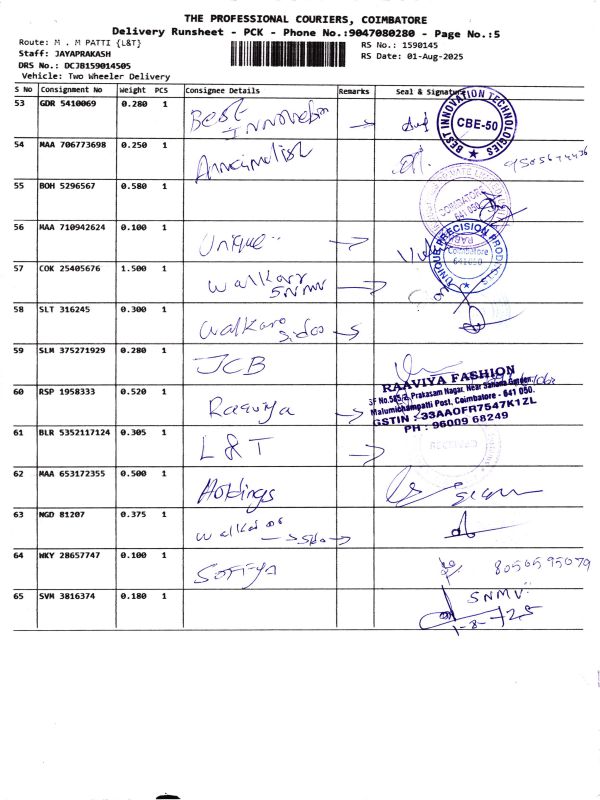 THE PROFESSIONAL COURIERS, COIMBATORE
Delivery Runsheet - PCK - Phone No.:9047080280 - Page No.:5
Route: M . M PATTI {L&T} RS No.: 1590145
Staff: JAYAPRAKASH RS Date: 01-Aug-2025
DRS No.: DCJB159014505
Vehicle: Two Wheeler Delivery
S No Consignment No Weight PCS Consignee Details Remarks Seal & Signature
53 GDR 5410069 0.280 1 Best Innovation
BEST INNOVATION TECHNOLOGIES CBE-50
54 MAA 706773698 0.250 1
55 BOH 5296567 0.580 1
COIMBATORE 641 050
56 MAA 710942624 0.100 1 Unique
UNIQUE PRECISION PRODUCTS Coimbatore 641050
57 COK 25405676 1.500 1 SNMV
58 SLT 316245 0.300 1
59 SLM 375271929 0.280 1 JCB
60 RSP 1958333 0.520 1 Raaviya
RAAVIYA FASHION
Malumichampatti Post, Coimbatore - 641 050.
GSTIN : 33AAOFR7547K1ZL
PH : 96009 68249
61 BLR 5352117124 0.305 1 L & T
RECEIVED
62 MAA 653172355 0.500 1 Holdings
63 NGD 81207 0.375 1
64 WKY 28657747 0.100 1 8056595079
65 SVM 3816374 0.180 1 SNMV
1-8-25